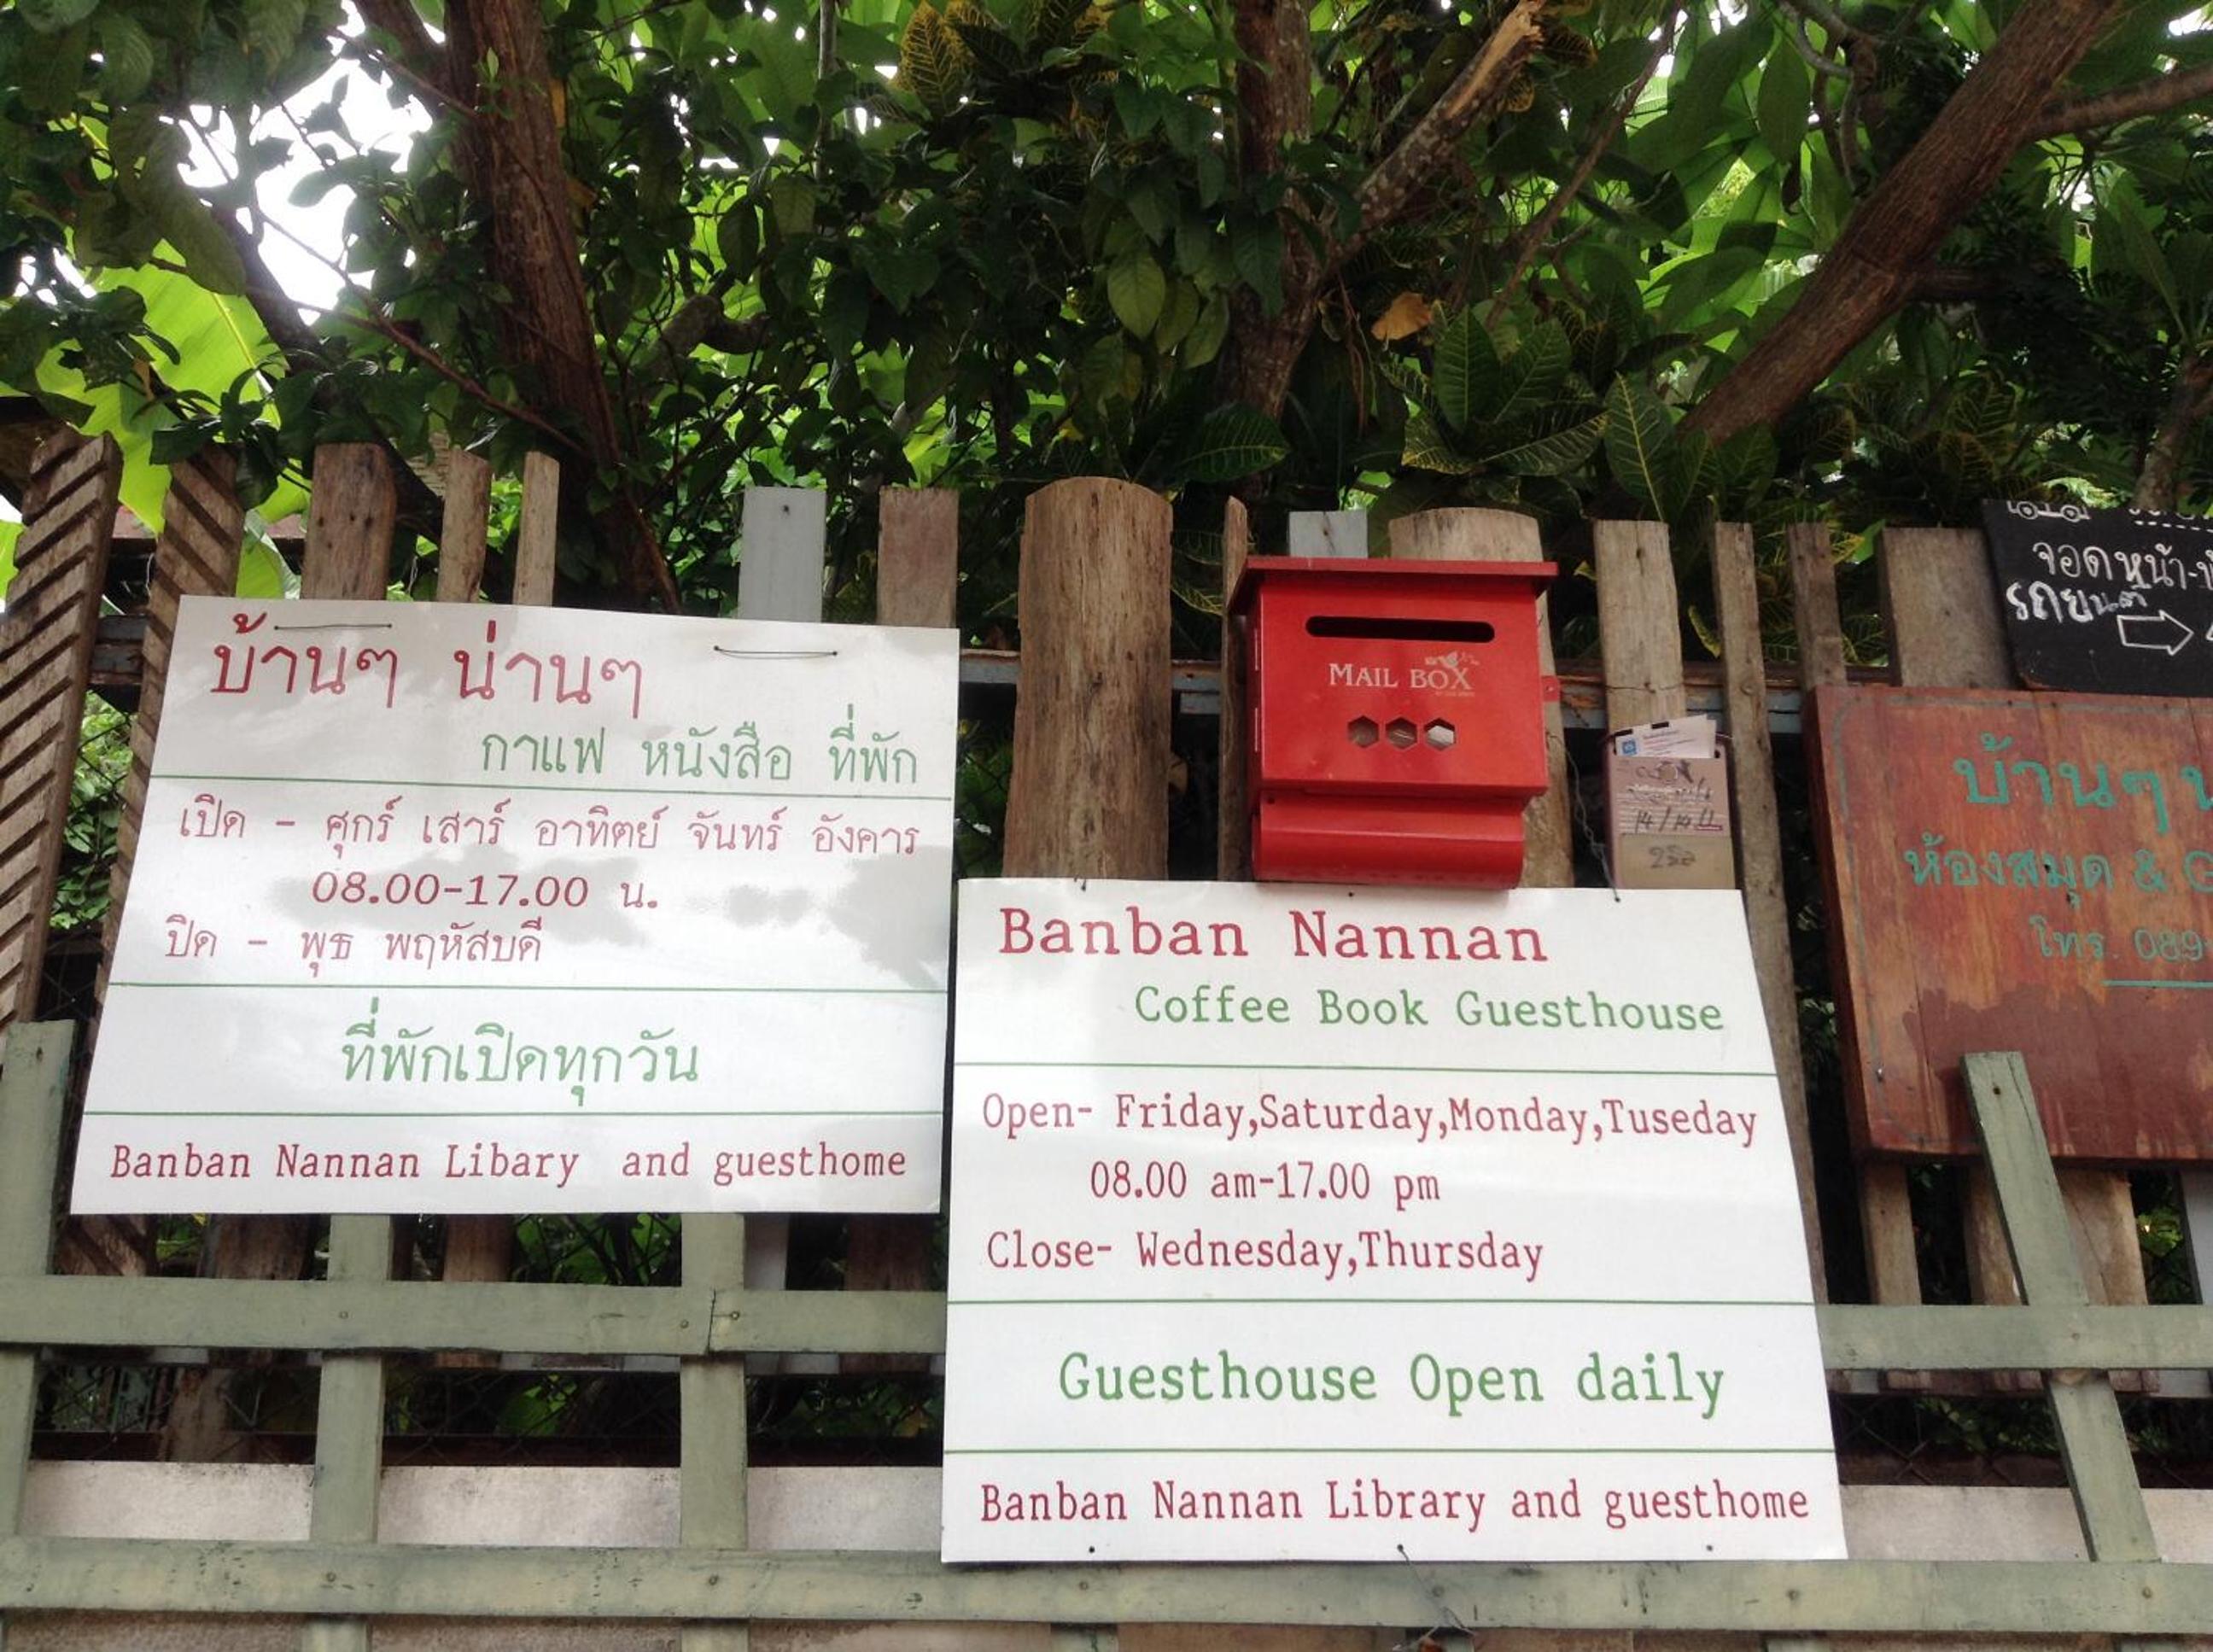 บ้านๆ น่านๆ
กาแฟ หนังสือ ที่พัก
เปิด - ศุกร์ เสาร์ อาทิตย์ จันทร์ อังคาร
08.00-17.00 น.
ปิด - พุธ พฤหัสบดี
ที่พักเปิดทุกวัน
Banban Nannan Libary and guesthome
MAIL BOX
Banban Nannan
Coffee Book Guesthouse
Open- Friday,Saturday,Monday,Tuseday
08.00 am-17.00 pm
Close- Wednesday,Thursday
Guesthouse Open daily
Banban Nannan Library and guesthome
จอดหน้า-
รถยนต์
บ้านๆ
ห้องสมุด & G
โทร. 089